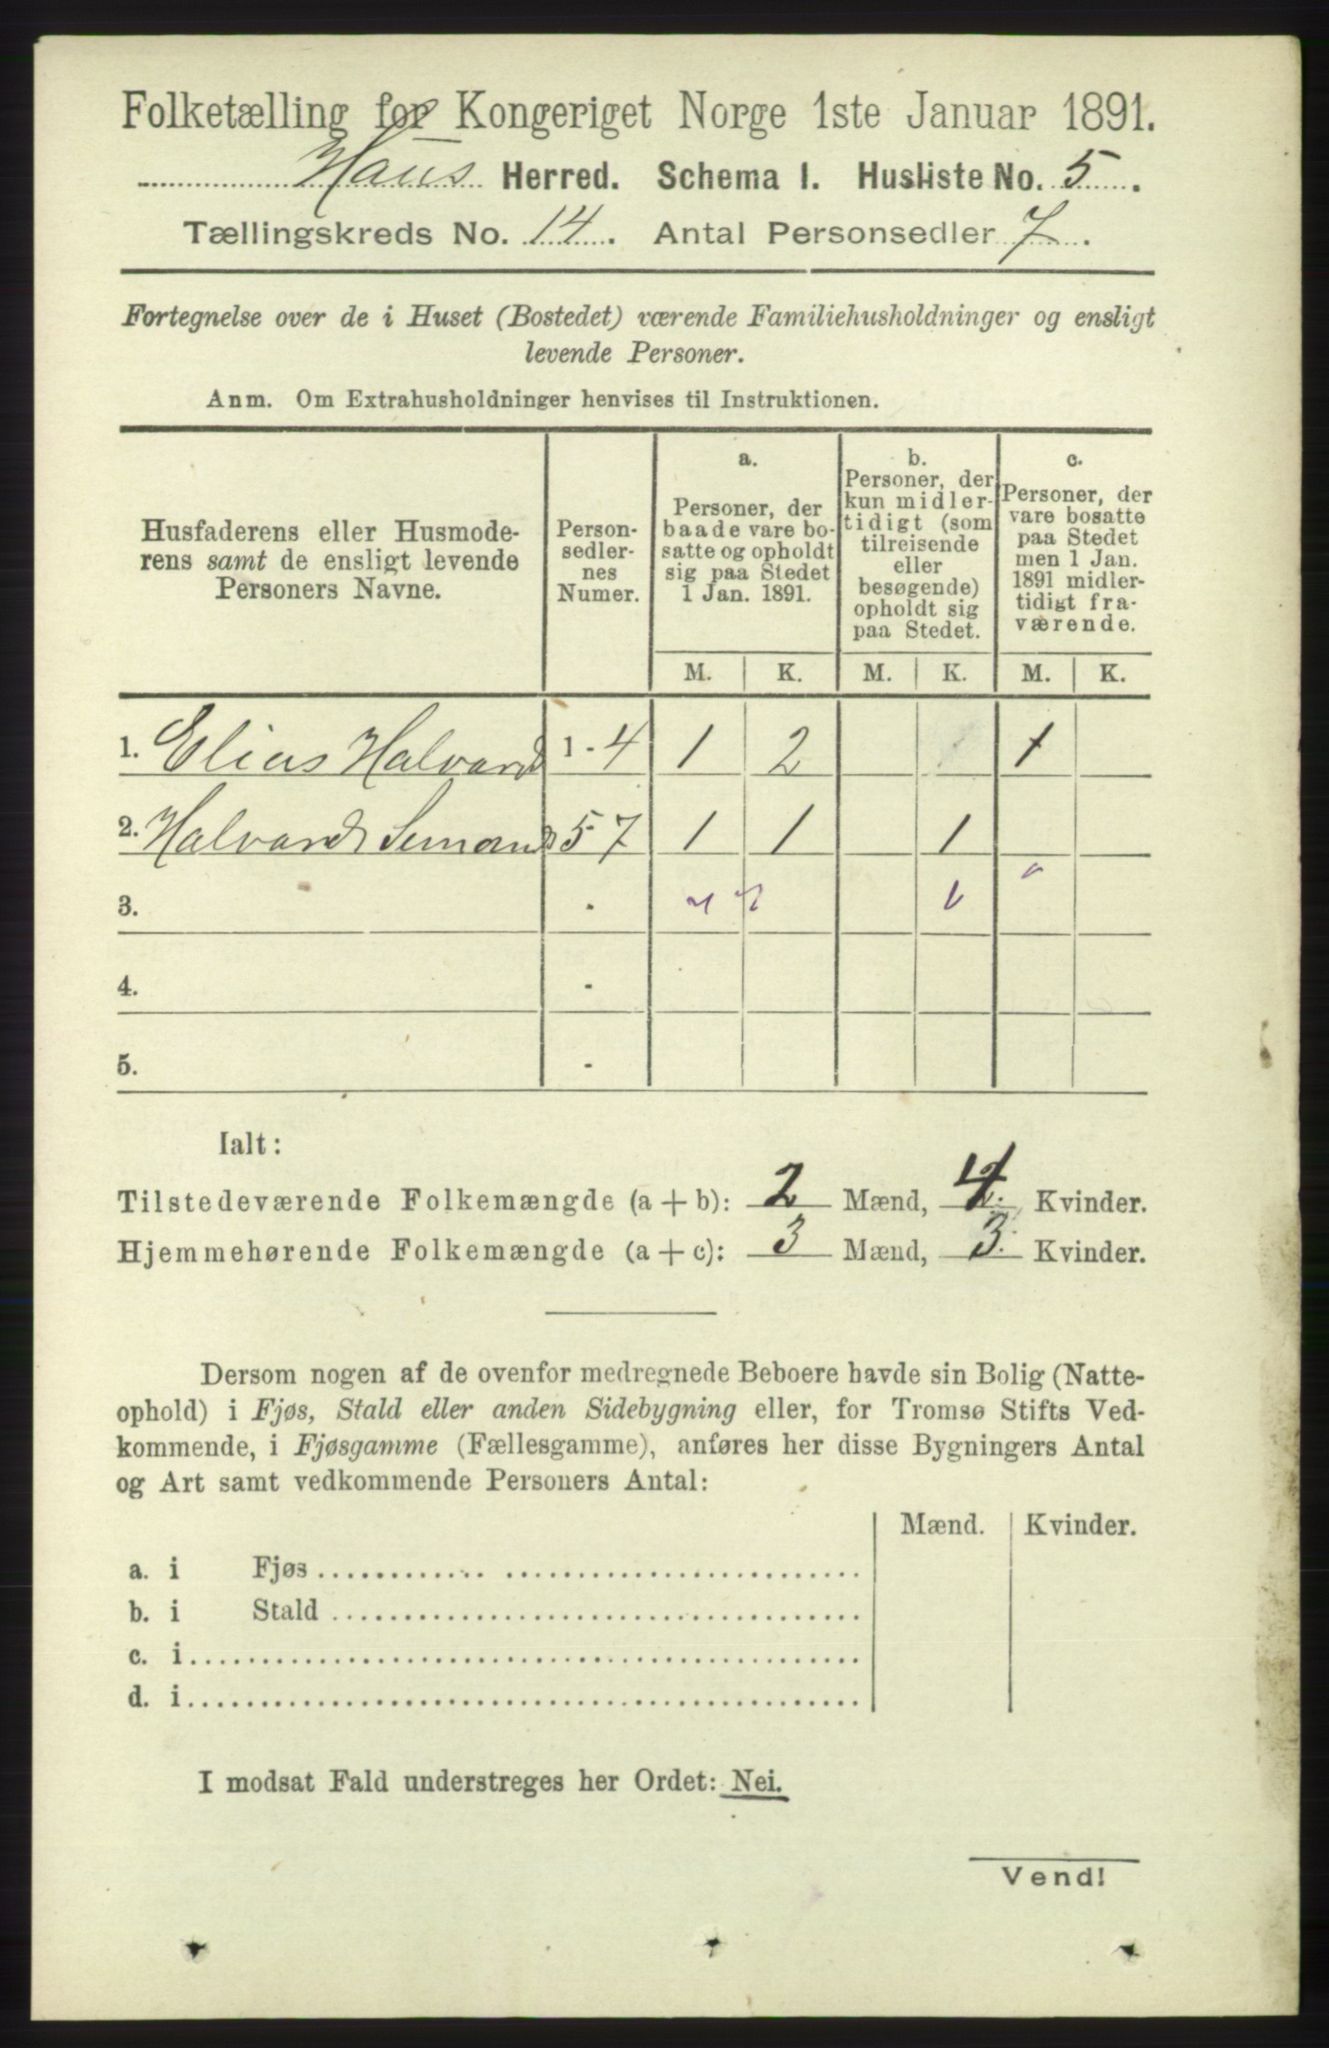 Folketælling for Kongeriget Norge 1ste Januar 1891.
Haus Herred. Schema I. Husliste No. 5.
Tællingskreds No. 14. Antal Personsedler 7.
Fortegnelse over de i Huset (Bostedet) værende Familiehusholdninger og ensligt
levende Personer.
Anm. Om Extrahusholdninger henvises til Instruktionen.
Husfaderens eller Husmode-
rens samt de ensligt levende
Personers Navne.
Person-
sedler-
nes
Numer.
a.
Personer, der
baade vare bo-
satte og opholdt
sig paa Stedet
1 Jan. 1891.
b.
Personer, der
kun midler-
tidigt (som
tilreisende
eller
besøgende)
opholdt sig
paa Stedet.
c.
Personer, der
vare bosatte
paa Stedet
men 1 Jan.
1891 midler-
tidigt fra-
værende.
M. K. M. K. M. K.
1. Elias Halvard 1-4 1 2 1
2. Halvard 5 7 1 1 1
3. -
4. -
5. -
Ialt:
Tilstedeværende Folkemængde (a + b): 2 Mænd, 4 Kvinder.
Hjemmehørende Folkemængde (a + c): 3 Mænd, 3 Kvinder.
Dersom nogen af de ovenfor medregnede Beboere havde sin Bolig (Natte-
ophold) i Fjøs, Stald eller anden Sidebygning eller, for Tromsø Stifts Ved-
kommende, i Fjøsgamme (Fællesgamme), anføres her disse Bygningers Antal
og Art samt vedkommende Personers Antal:
Mænd. Kvinder.
a. i Fjøs
b. i Stald
c. i
d. i
I modsat Fald understreges her Ordet: Nei.
Vend!